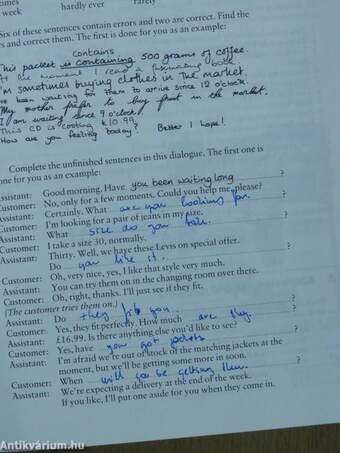 week hardly ever rarely
Six of these sentences contain errors and two are correct. Find the
rs and correct them. The first is done for you as an example:
contains
This packet is containing 500 grams of coffee.
At the moment I read a fascinating book.
I'm sometimes buying clothes in the market.
've been waiting for them to arrive since 12 o'clock.
My mother prefer to buy fruit in the market.
I am waiting since 9 o'clock
This CD is costing £10.99
How are you feeling today? Better I hope!
Complete the unfinished sentences in this dialogue. The first one is
done for you as an example:
Assistant: Good morning. Have you been waiting long ?
Customer: No, only for a few moments. Could you help me, please?
Assistant: Certainly. What are you looking for ?
Customer: I'm looking for a pair of jeans in my size.
Assistant: What size do you take ?
Customer: I take a size 30, normally.
Assistant: Thirty. Well, we have these Levis on special offer.
Do you like it ?
Customer: Oh, very nice, yes, I like that style very much.
Assistant: You can try them on in the changing room over there.
Customer: Oh, right, thanks. I'll just see if they fit.
[The customer tries them on.]
Assistant: Do they fit you ?
Customer: Yes, they fit perfectly. How much are they ?
Assistant: £16.99. Is there anything else you'd like to see?
Customer: Yes, have you got jackets ?
Assistant: I'm afraid we're out of stock of the matching jackets at the
moment, but we'll be getting some more in soon.
Customer: When will you be getting them ?
Assistant: We're expecting a delivery at the end of the week.
If you like, I'll put one aside for you when they come in.
Antikvárium.hu